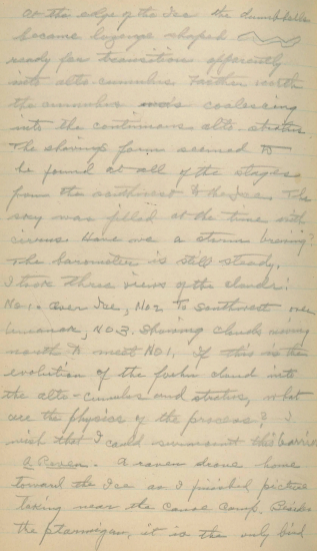 At the edge of the Ice the dumbbells
became lozenge shaped
ready for transition apparently
into alto cumulus. Farther north
the cumulus was coalescing
into the continuous alto stratus.
The shavings form seemed to
be found at all of the stages
from the southwest to the Ice. The
sky was filled at the time with
cirrus. Have we a storm brewing?
The barometer is still steady.
I took three views of the clouds:
No 1. over Ice, No 2 to Southwest over
Umanak, No 3. Showing clouds moving
north to meet No 1. If this is the
evolution of the foehn cloud into
the alto-cumulus and stratus, what
are the physics of the process? I
wish that I could surmount this barrier
A Raven. A raven drove home
toward the Ice as I finished picture
taking near the canoe camp. Besides
the ptarmigan, it is the only bird